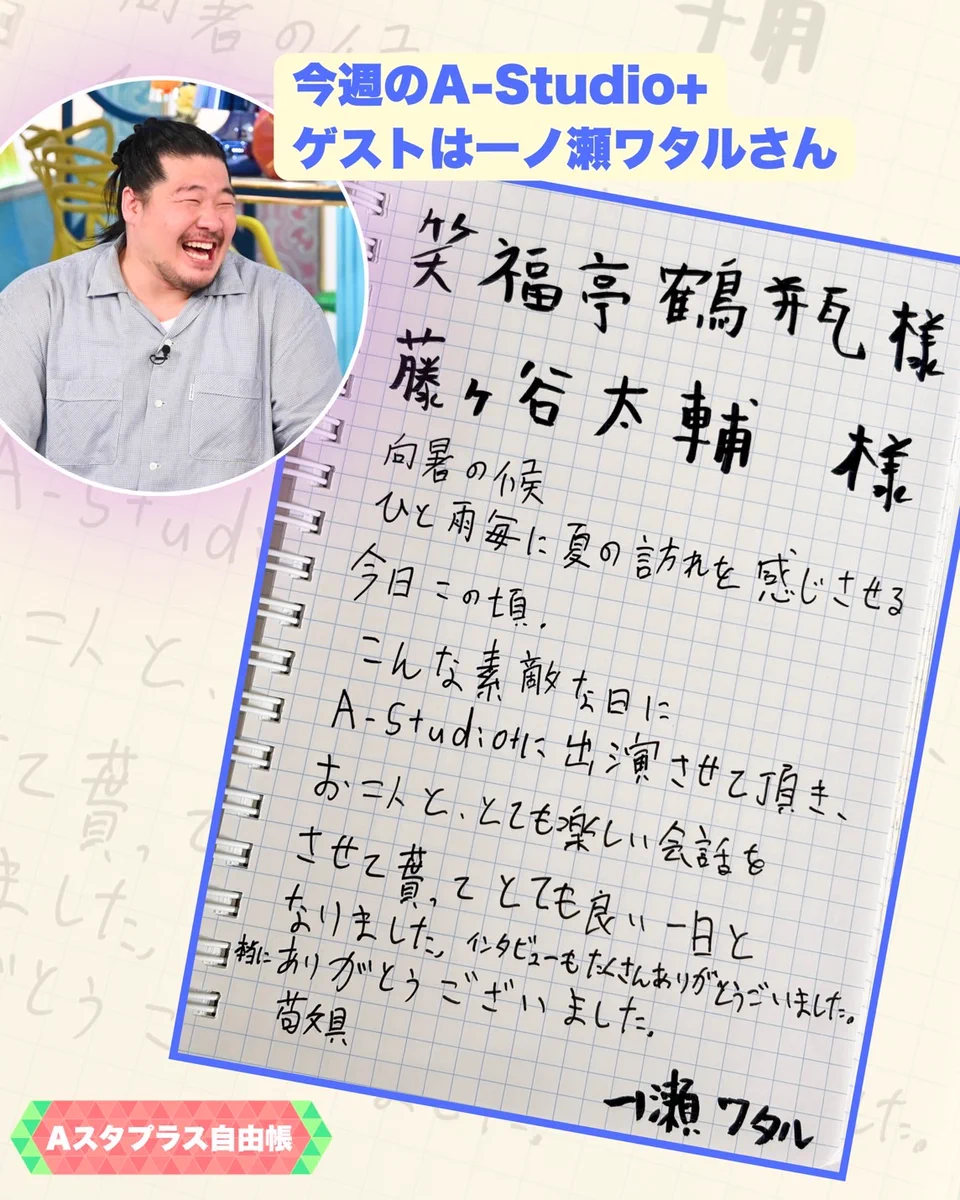 今週のA-Studio+
ゲストは一ノ瀬ワタルさん
笑福亭鶴瓶様
藤ヶ谷太輔 様
向暑の候
ひと雨毎に夏の訪れを感じさせる
今日この頃。
こんな素敵な日に
A-Studio+に出演させて頂き、
お二人と、とても楽しい会話を
させて貰って とても良い一日と
なりました。インタビューもたくさんありがとうございました。
本当にありがとうございました。
一ノ瀬ワタル
Aスタプラス自由帳